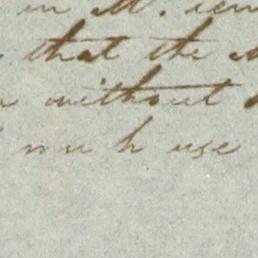 in M.
that the
without
much use